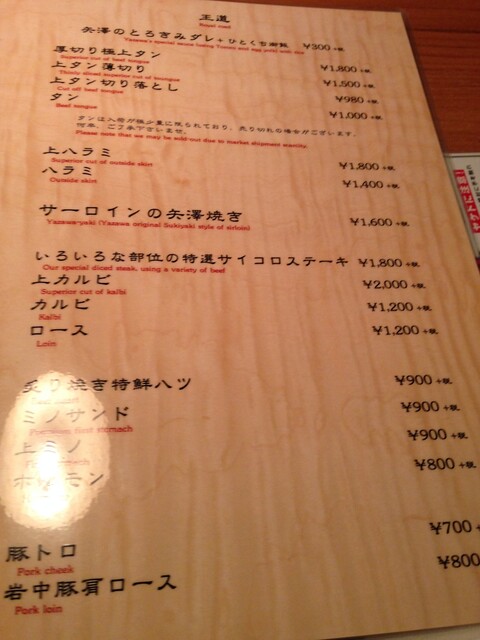 王道
矢澤のとろぎみダレ+ひとくち御飯 ¥300+税
厚切り極上タン
Superior cut of beef tongue
上タン薄切り ¥1,800+税
上タン切り落とし ¥1,500+税
Cut off beef tongue
¥980+税
タン ¥1,000+税
Beef tongue
タンは入荷が極少量に限られており、売り切れの場合がございます。
何卒、ご了承下さいませ。
Please note that we may be sold out due to market shipment
上ハラミ ¥1,800+税
Superior cut of outside skirt
ハラミ ¥1,400+税
Outside skirt
サーロインの矢澤焼き ¥1,600+税
Yazawa-yaki (Yazawa original Sukiyaki style of sirloin)
いろいろな部位の特選サイコロステーキ ¥1,800+税
Our special diced steak, using a variety of beef
上カルビ ¥2,000+税
Superior cut of kalbi
カルビ ¥1,200+税
Kalbi
ロース ¥1,200+税
Loin
炙り焼き特鮮ハツ ¥900+税
ミノサンド ¥900+税
stomach
上ミノ ¥900+税
ホルモン ¥800+税
豚トロ ¥700+
Pork cheek
岩中豚肩ロース ¥800
Pork loin